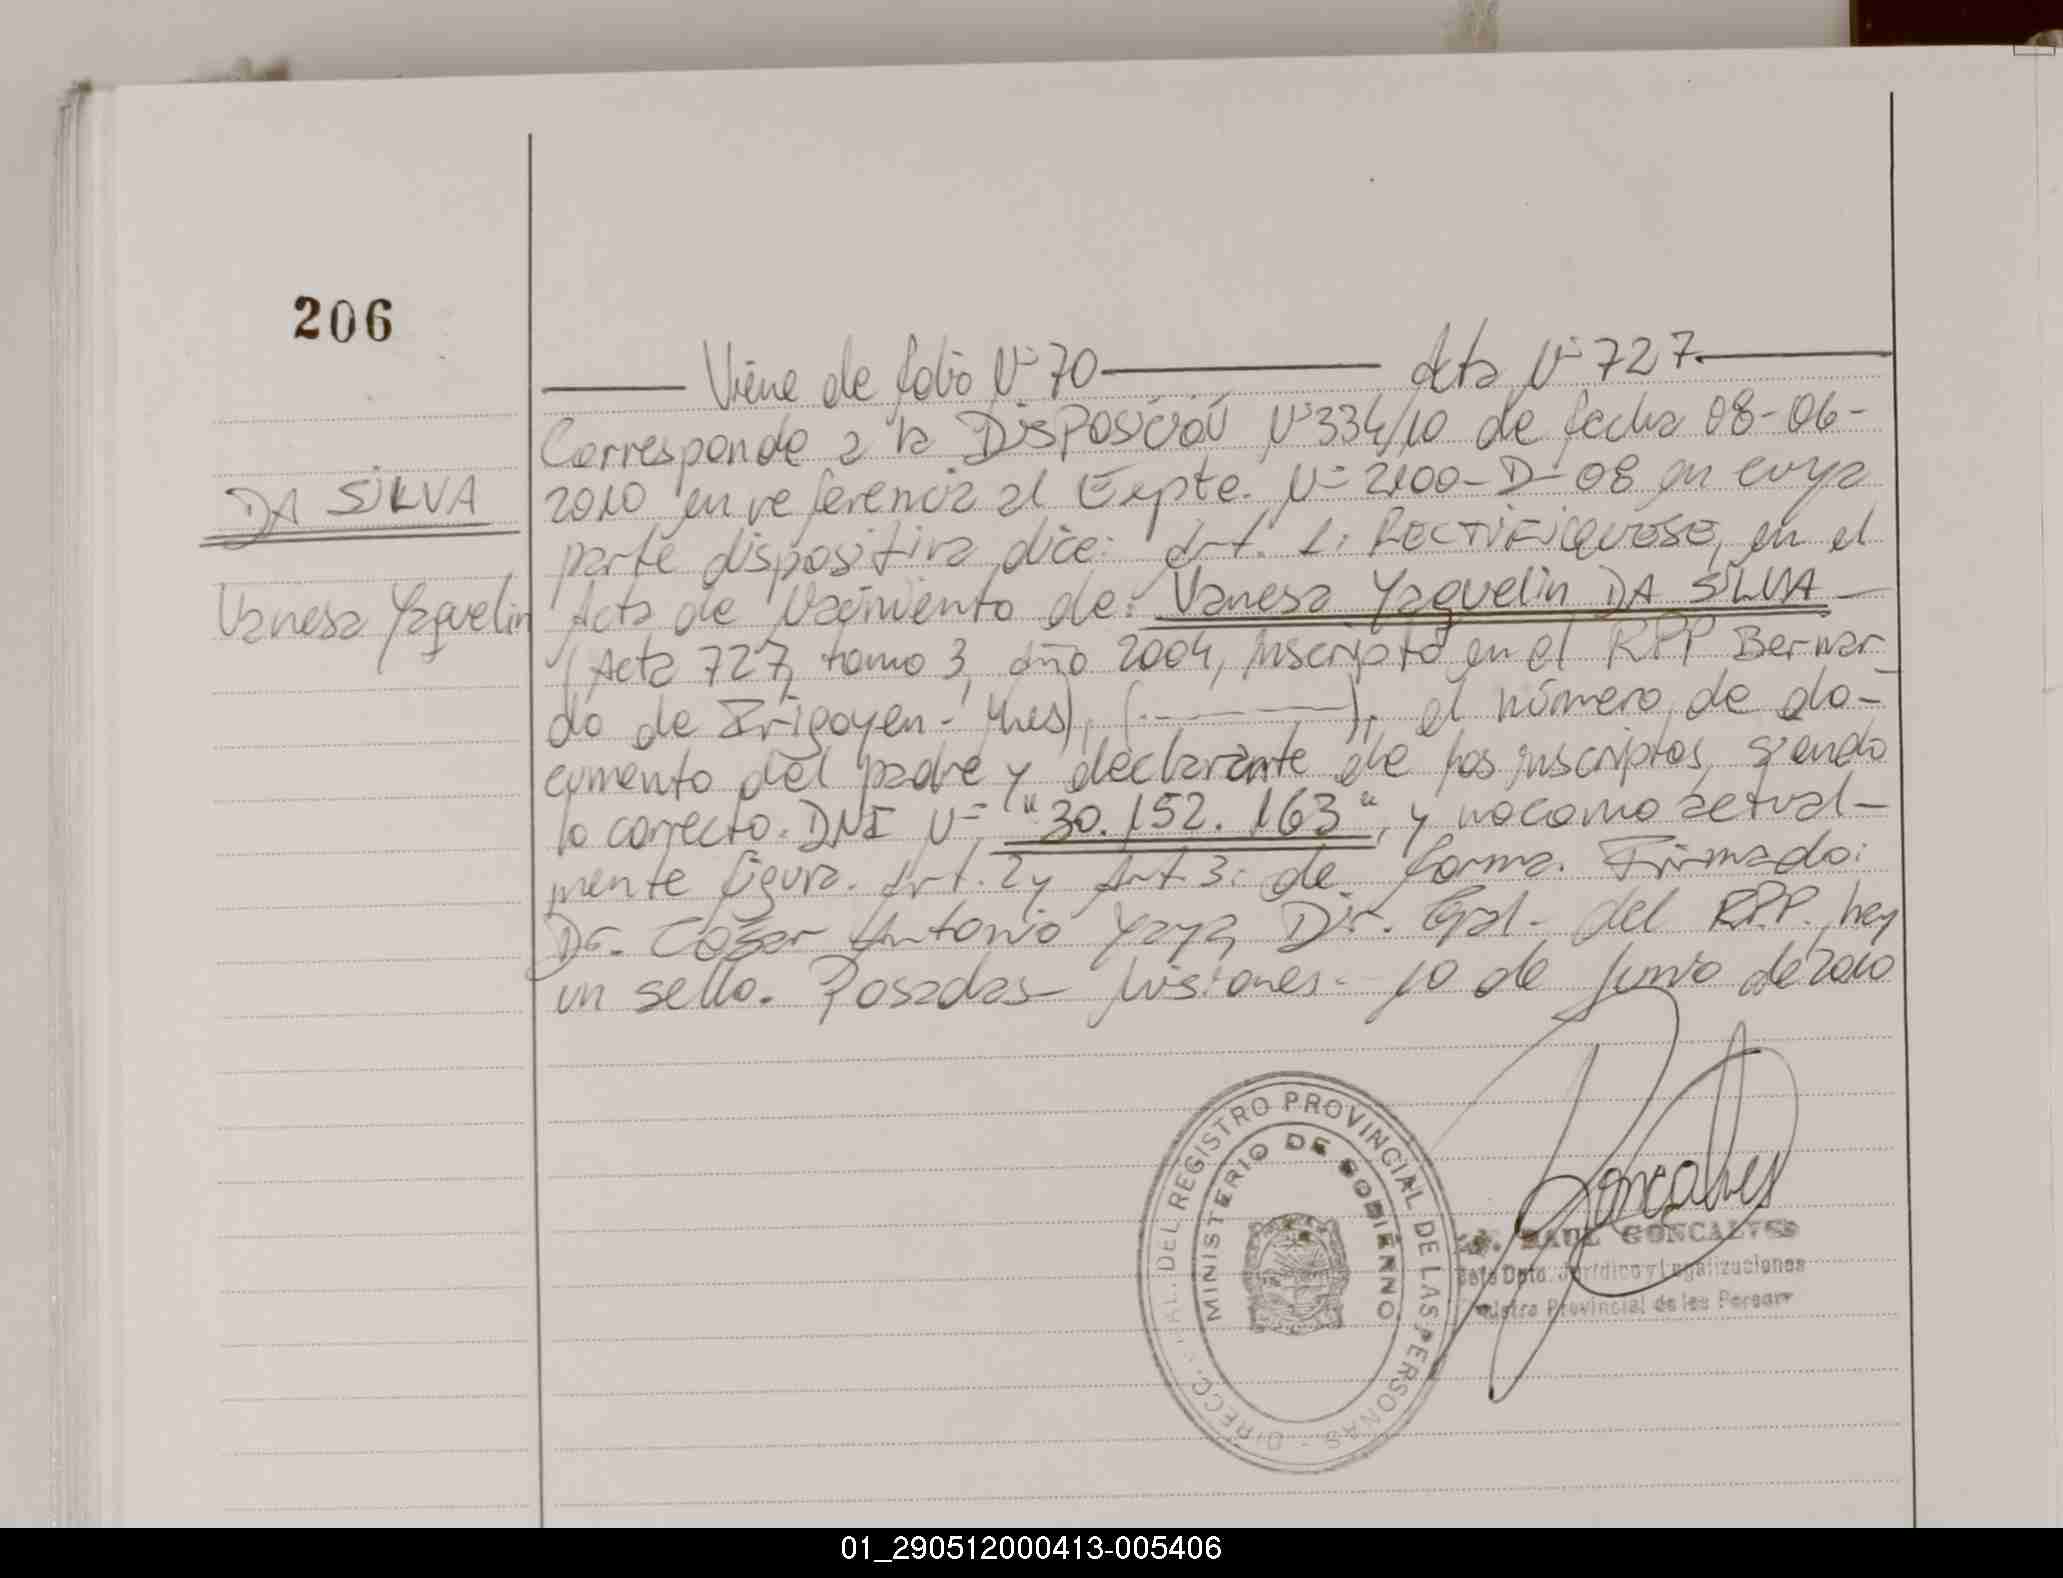 206
Viene de folio Nº 70 Acta Nº 727
Corresponde a la DISPOSICIÓN Nº 334/10 de fecha 08-06-
DA SILVA
2010 en referencia al Expte. Nº 2100-D-08 en cuya
parte dispositiva dice: Art. 1: RECTIFIQUESE, en el
Vanesa Yaquelin
Acta de Nacimiento de: Vanesa Yaquelin DA SILVA
(Acta 727, tomo 3, año 2004, inscripto en el RPP Bernar
do de Irigoyen- Mnes), (. ), el número de do-
cumento del padre y declarante de los inscriptos, siendo
lo correcto. DNI Nº "30.152.163", y no como actual-
mente figura. Art. 2 y Art. 3: de forma. Firmado:
Dr. César Antonio Yaya, Dir. Gral. del RPP. hay
un sello. Posadas Misiones- 10 de Junio de 2010
DIRECC. GRAL. DEL REGISTRO PROVINCIAL DE LAS PERSONAS -
MINISTERIO DE GOBIERNO
Goncalves
RAUL GONCALVES
Jefe Dpto. Jurídico y Legalizaciones
Registro Provincial de las Personas
01_290512000413-005406